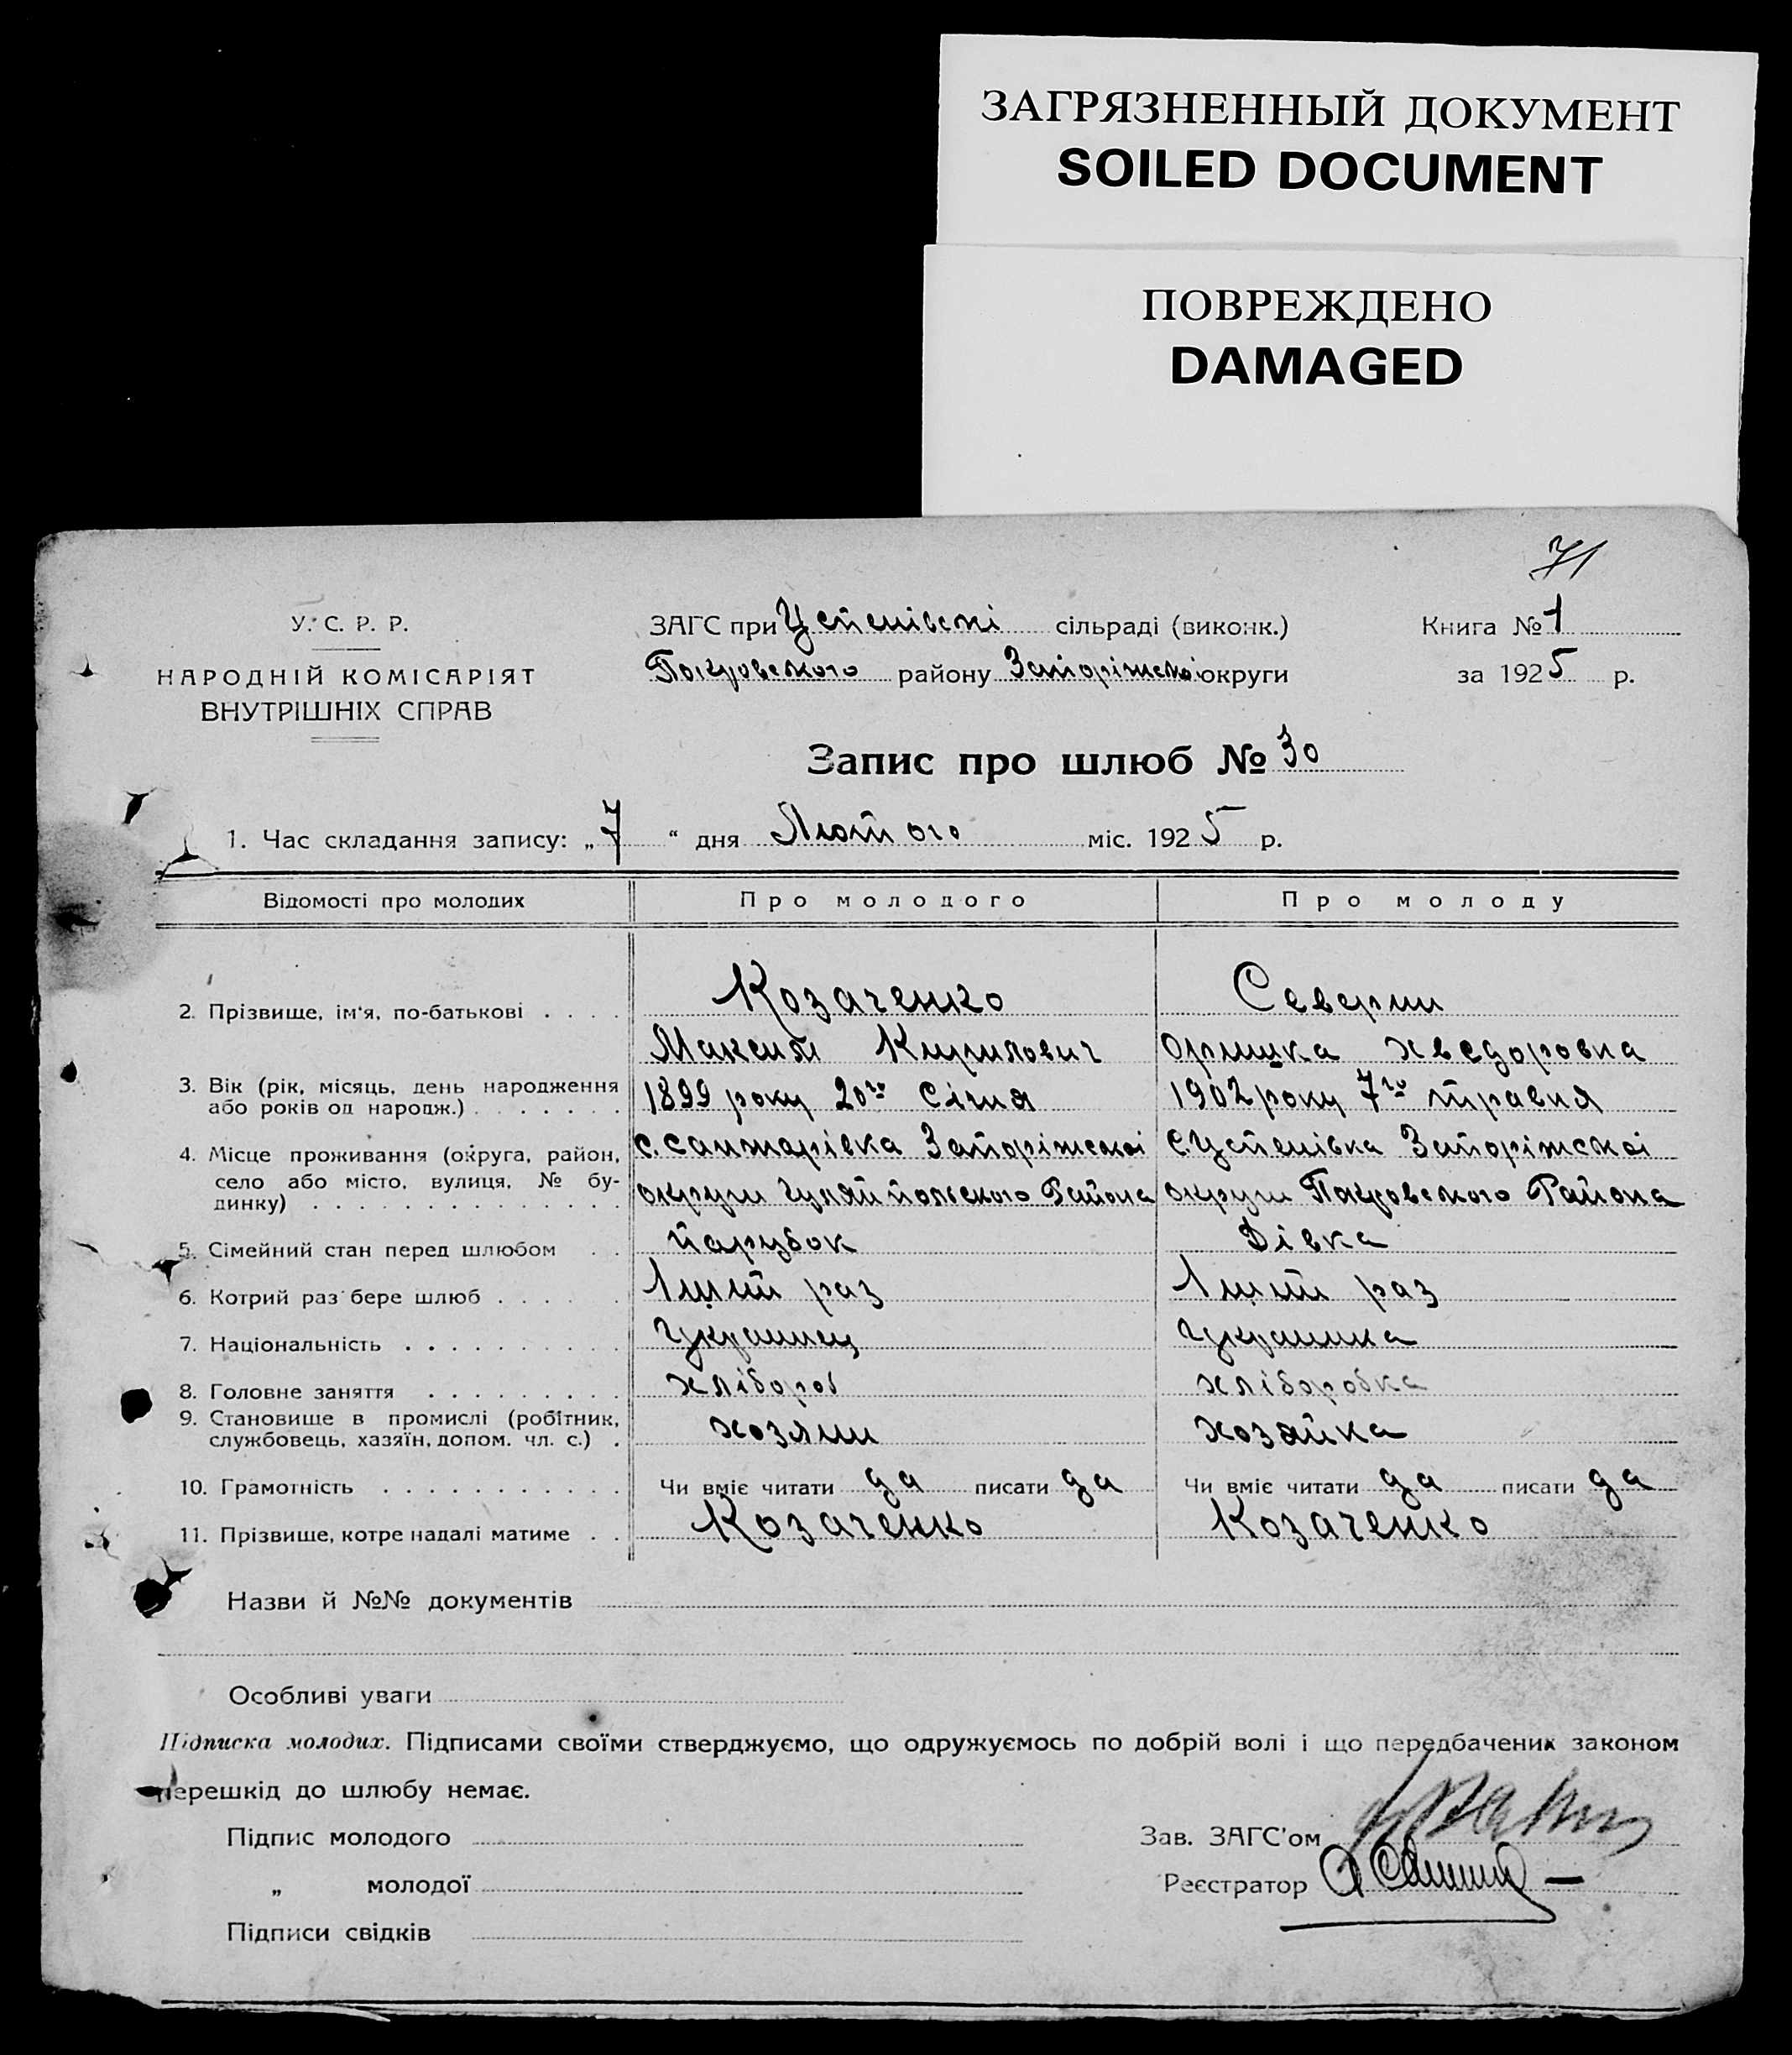 ЗАГРЯЗНЕННЫЙ ДОКУМЕНТ
SOILED DOCUMENT
ПОВРЕЖДЕНО
DAMAGED
71
У. С. Р. Р.
НАРОДНІЙ КОМІСАРІЯТ
ВНУТРІШНІХ СПРАВ
ЗАГС при Успенівскі сільраді (виконк.)
Покровського району Запоріжскоі округи
Книга № 1
за 1925 р.
Запис про шлюб № 30
1. Час складання запису: „7“ дня Лютого міс. 1925 р.
Відомості про молодих Про молодого Про молоду
2. Прізвище, ім'я, по-батькові . . . . Козаченко Северин
Максим Кирилович Оришка Хведоровна
3. Вік (рік, місяць, день народження або років од народж.) . . . . . . . 1899 року 20го Січня 1902 року 7го травня
4. Місце проживання (округа, район, село або місто, вулиця, № будинку) . . . . . . . . . . . . . . с. Санжарівка Запоріжскоі с. Успенівка Запоріжскоі
округи Гуляйпольского Района округи Покровского Района
5. Сімейний стан перед шлюбом . . парубок Дівка
6. Котрий раз бере шлюб . . . . . 1ший раз 1ший раз
7. Національність . . . . . . . . . . Украинец Украинка
8. Головне заняття . . . . . . . . . хлібороб хлібороbка
9. Становище в промислі (робітник, службовець, хазяїн, допом. чл. с.) . хозяин хозяйка
10. Грамотність . . . . . . . . . . . Чи вміє читати да писати да Чи вміє читати да писати да
11. Прізвище, котре надалі матиме . . Козаченко Козаченко
Назви й №№ документів
Особливі уваги
Підписка молодих. Підписами своїми стверджуємо, що одружуємось по добрій волі і що передбачених законом
перешкід до шлюбу немає.
Підпис молодого
Зав. ЗАГС'ом
„ молодої
Реєстратор
Підписи свідків